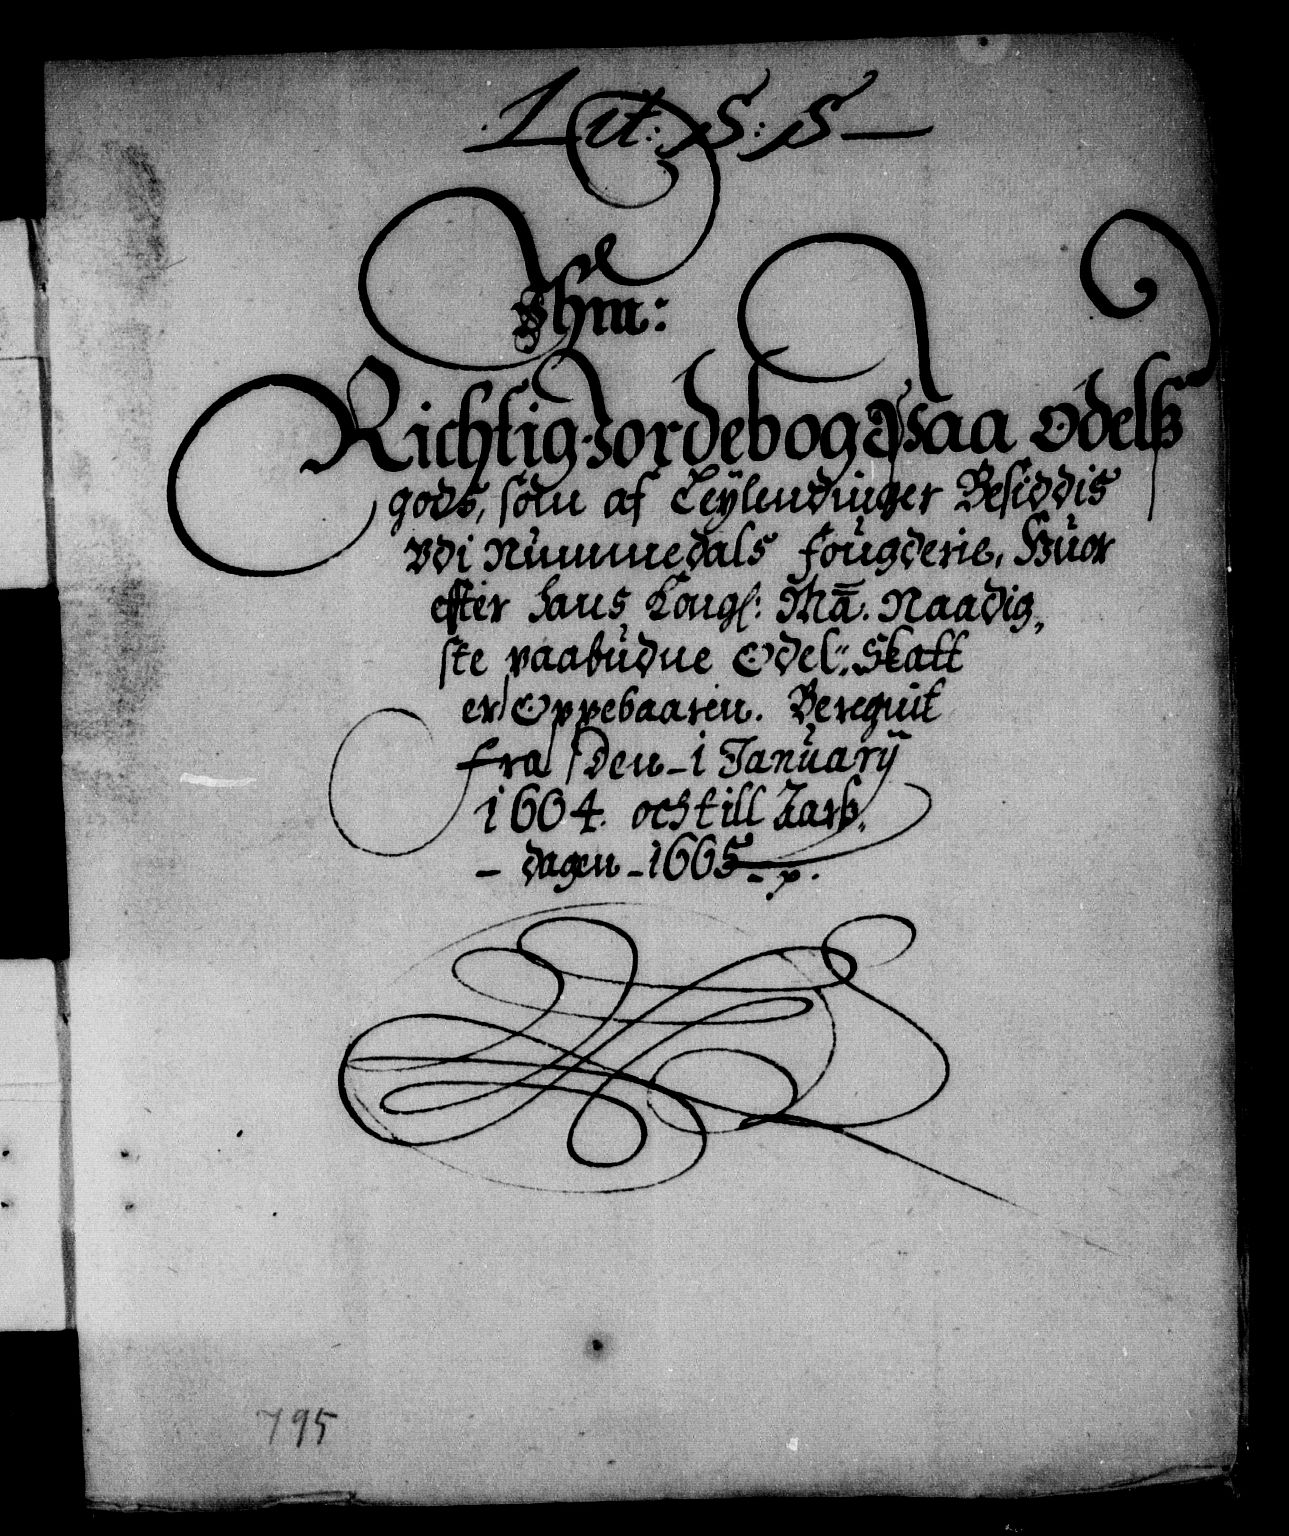 Lit: S: S
Ihm:
Richtig Jordebog Paa Odelß
gods, som af Leylendinger Besiddis
Vdi Nummedals fougderie, Huor
effter hans Kongl: Maÿ. Naadig,
ste paabudne Odel: Skatt
er Oppebaaren. Beregnit
fra den 1 January
1664. och till Aarß,
dagen 1665
795